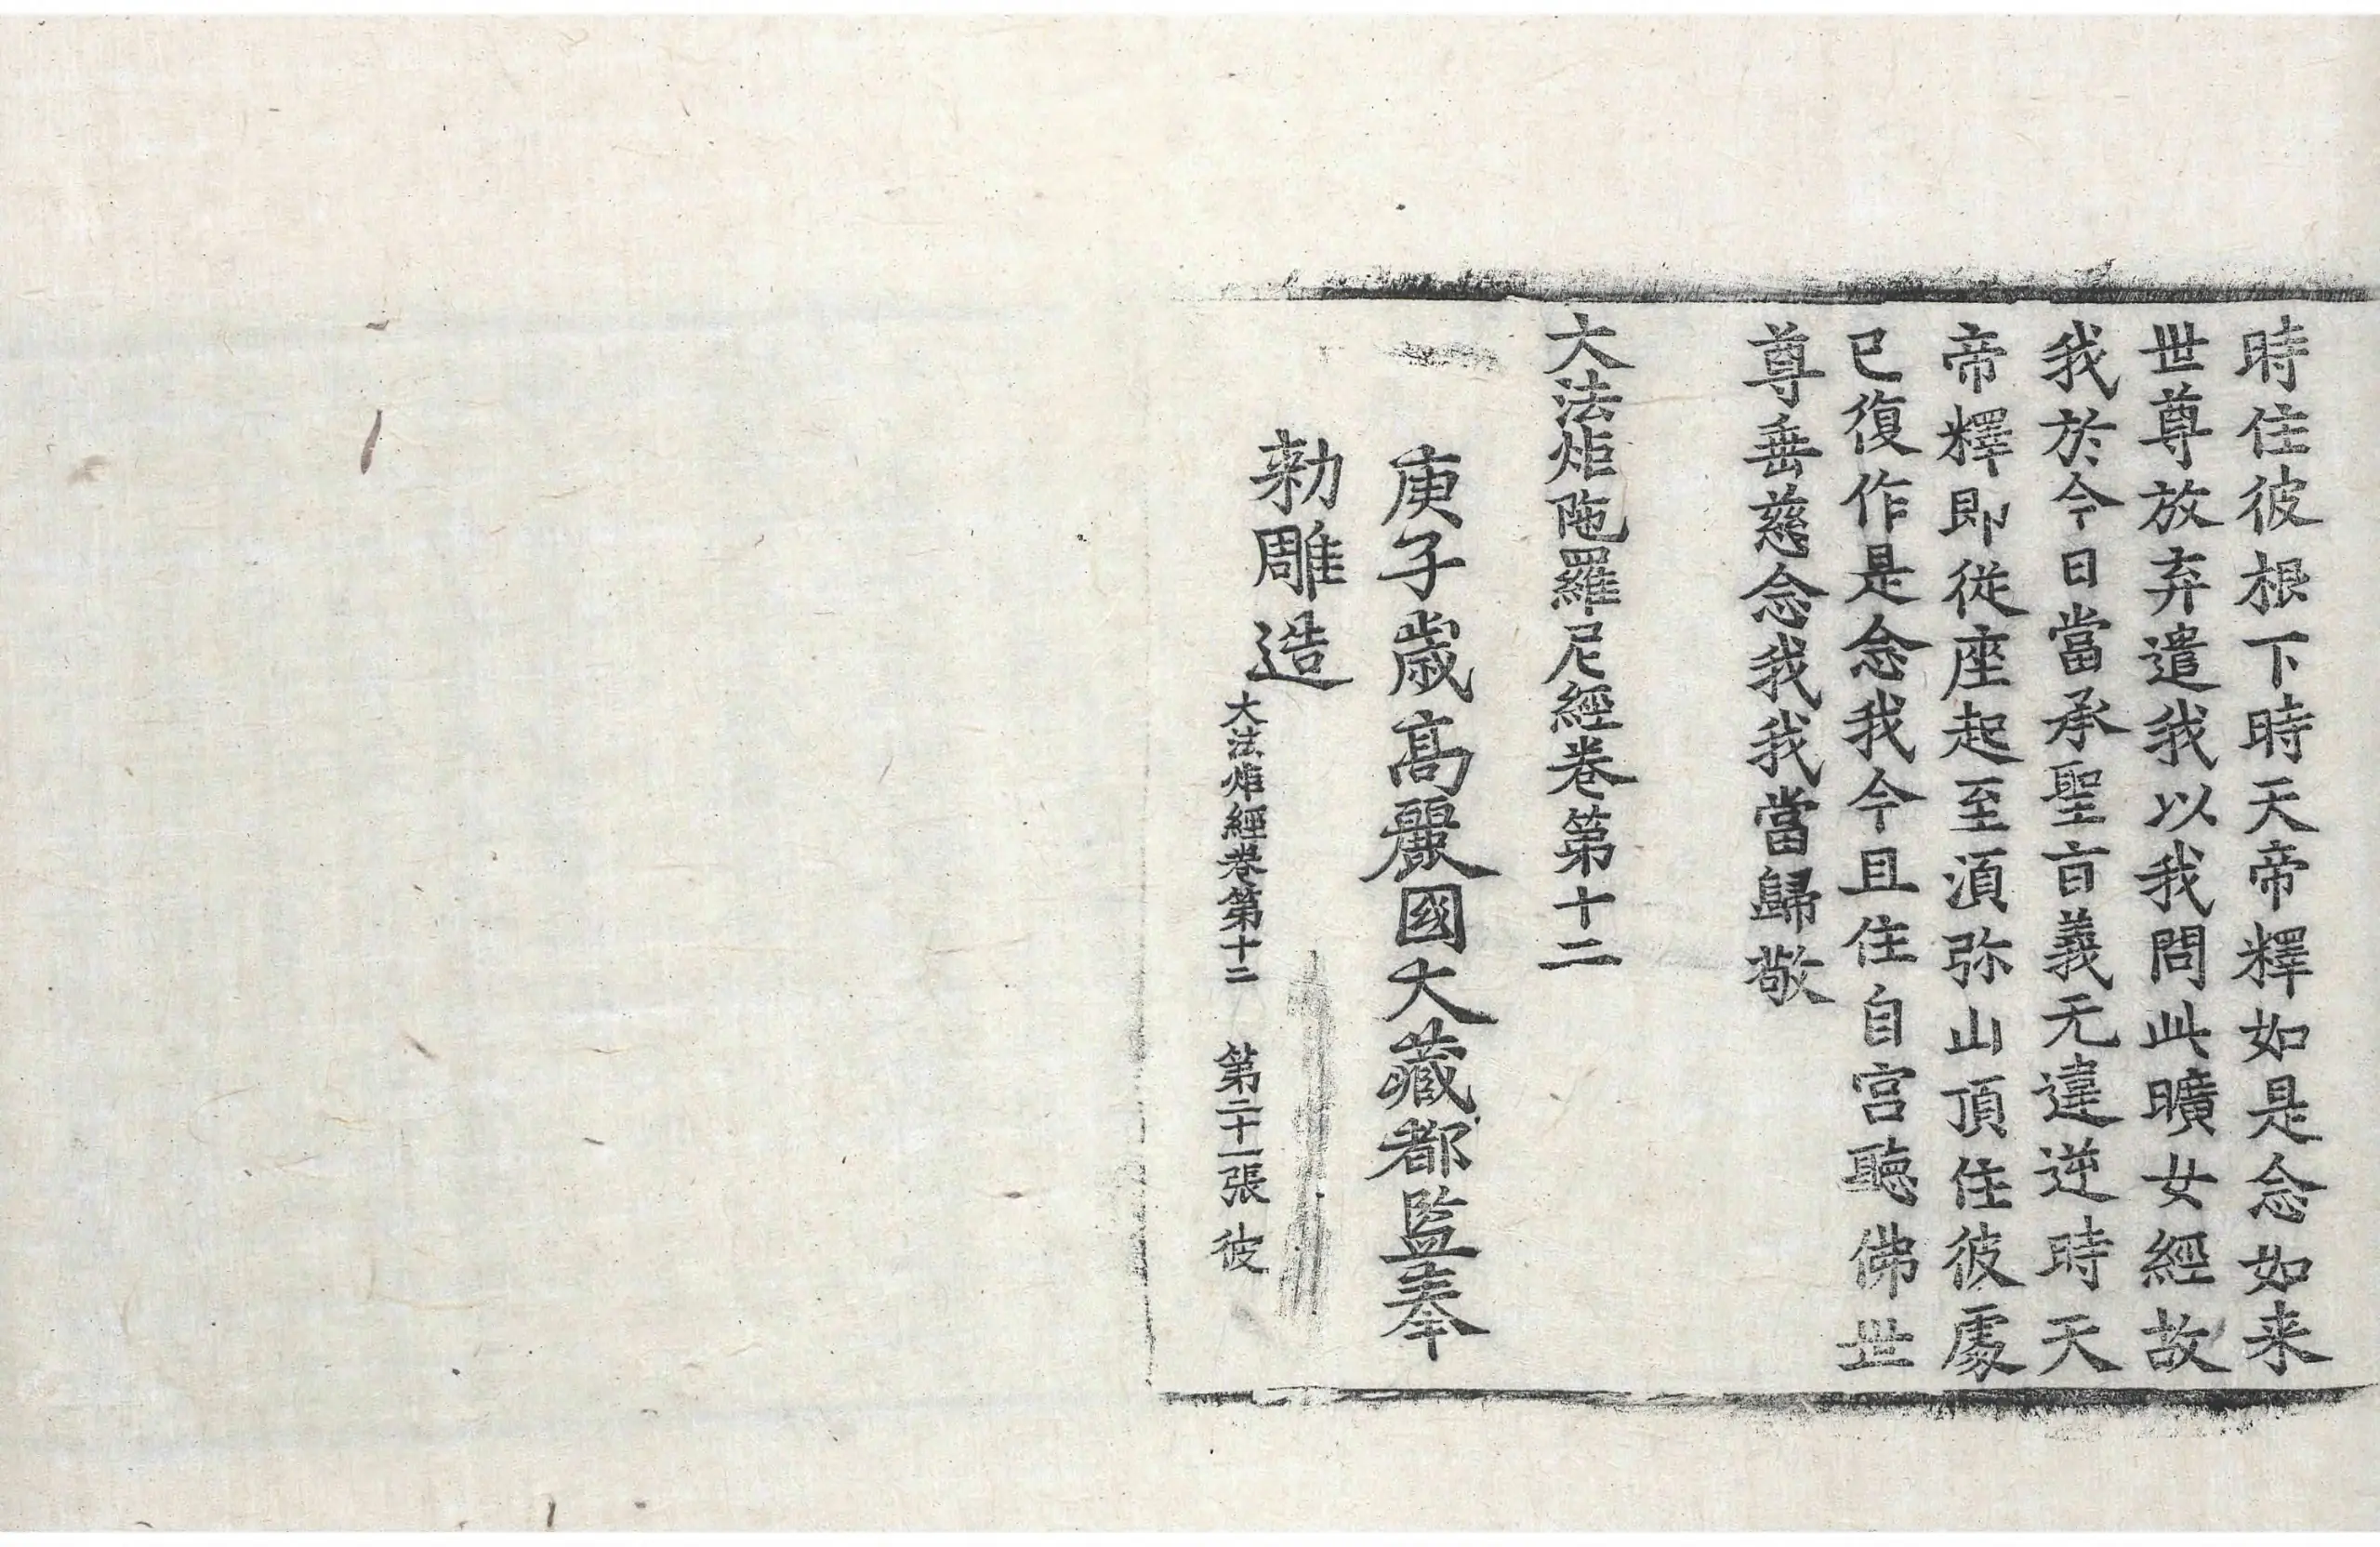 時住彼根下時天帝釋如是念如来
世尊放弃遣我以我問此曠女經故
我於今日當承聖旨義无違逆時天
帝釋即從座起至湏弥山頂住彼處
已復作是念我今且住自宫聽佛世
尊垂慈念我我當歸敬
大法炬陁羅尼經卷第十二
庚子歳高麗國大藏都監奉
勑雕造
大法炬經卷第十二 第二十一張 彼